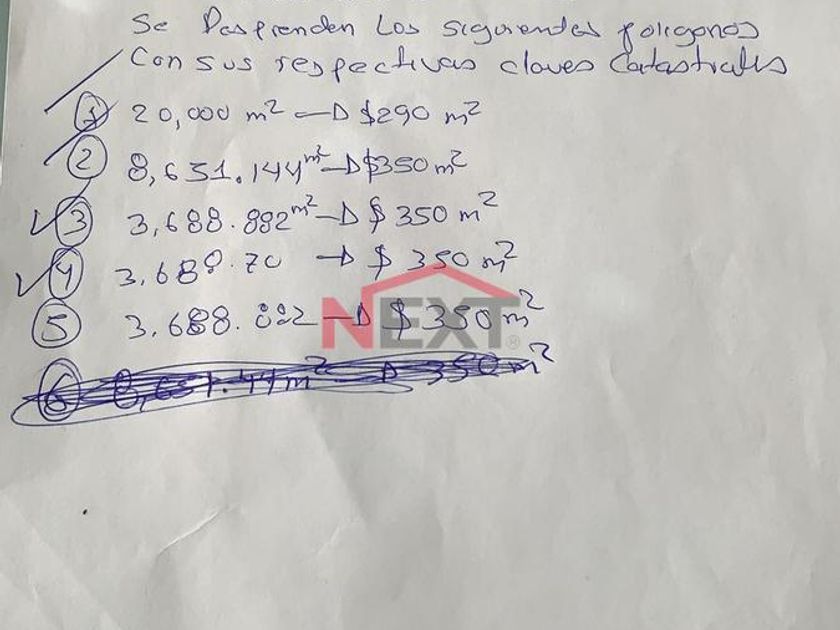 Se Desprenden Los siguientes poligonos
Con sus respectivas claves Catastrales
1 20,000 m² $290 m²
2 8,651.144 m² $350 m²
3 3,688.882 m² $350 m²
4 3,688.70 $350 m²
5 3.688.882 $350 m²
NEXT®
6 8,651.44 m² 350 m²